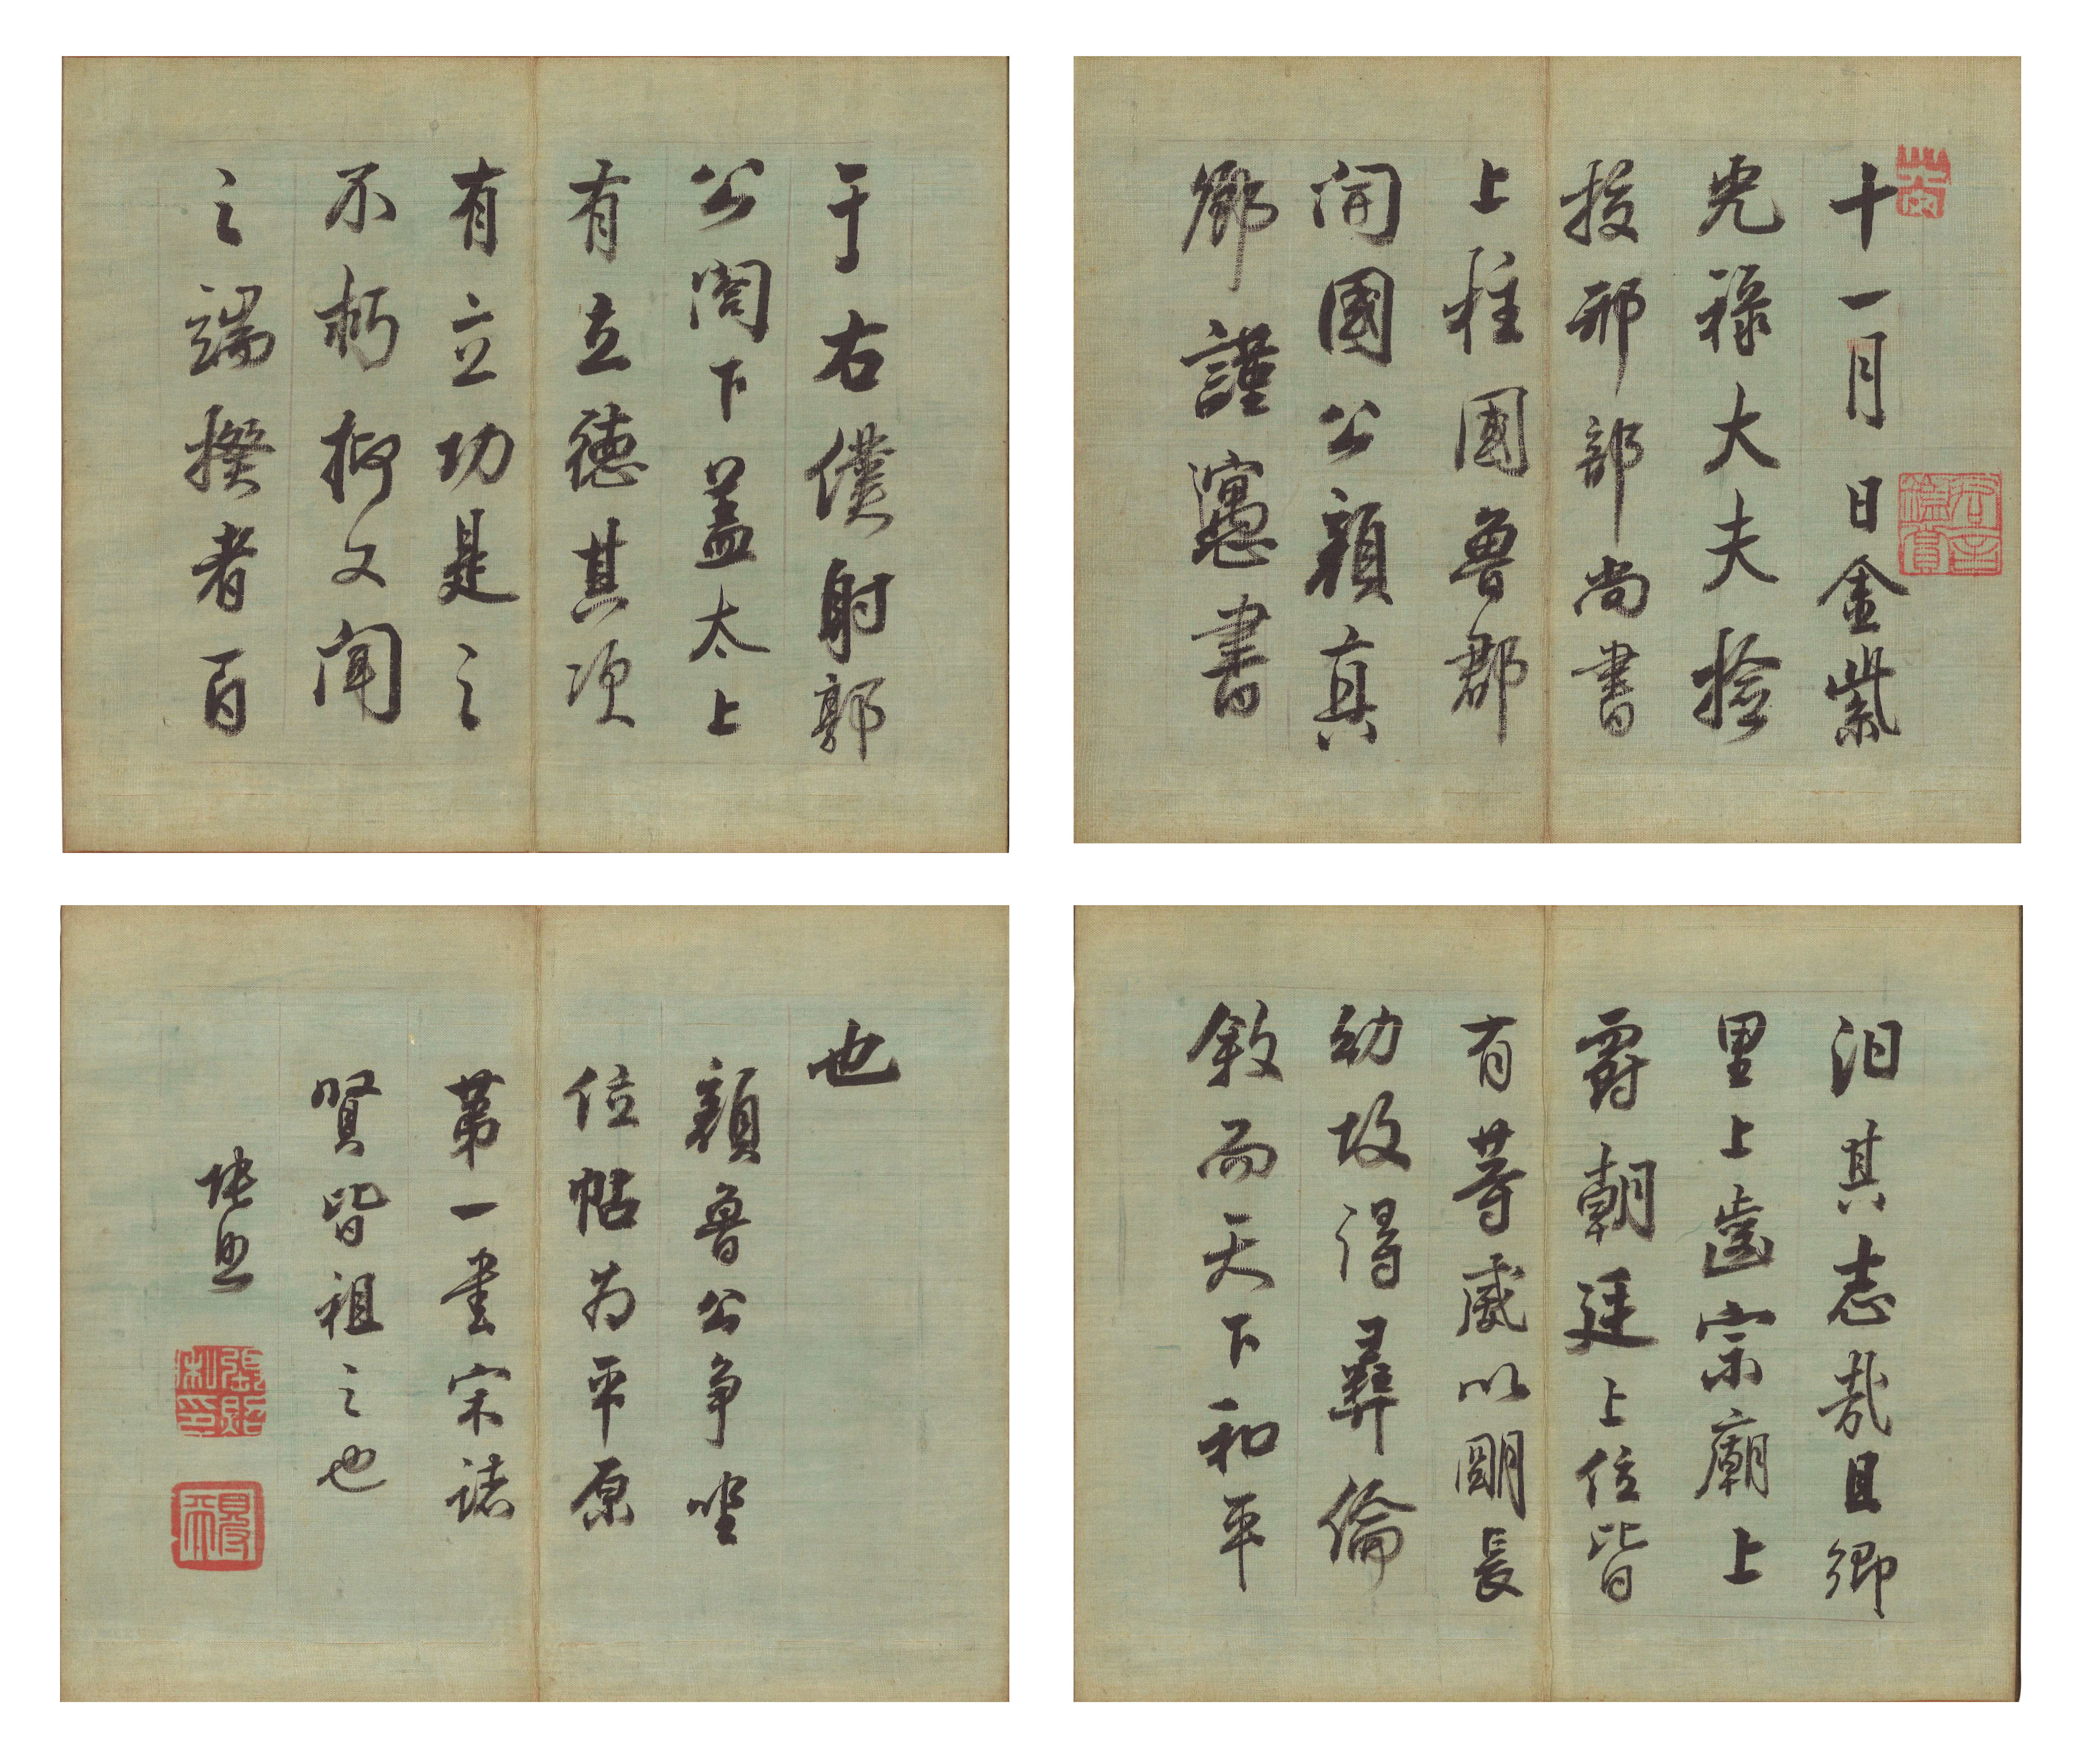 十一月日金紫
光祿大夫撿
挍刑部尚書
上柱國魯郡
開國公顏真
卿謹寓書
于右僕射郭
公閤下蓋太上
有立德其次
有立功是之
不朽抑又聞
之端揆者百
汩其志哉且鄉
里上齒宗廟上
爵朝廷上位皆
有等威以明長
幼故得彝倫
敘而天下和平
也
顏魯公爭坐
位帖為平原
第一書宋諸
賢皆祖之也
張照
張照之印